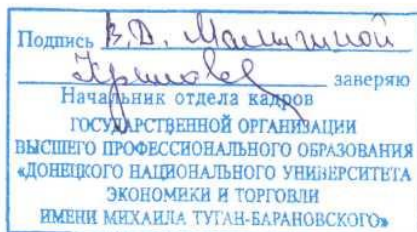 Подпись В.Д. Малыгиной
заверяю
Начальник отдела кадров
ГОСУДАРСТВЕННОЙ ОРГАНИЗАЦИИ
ВЫСШЕГО ПРОФЕССИОНАЛЬНОГО ОБРАЗОВАНИЯ
«ДОНЕЦКОГО НАЦИОНАЛЬНОГО УНИВЕРСИТЕТА
ЭКОНОМИКИ И ТОРГОВЛИ
ИМЕНИ МИХАИЛА ТУГАН-БАРАНОВСКОГО»